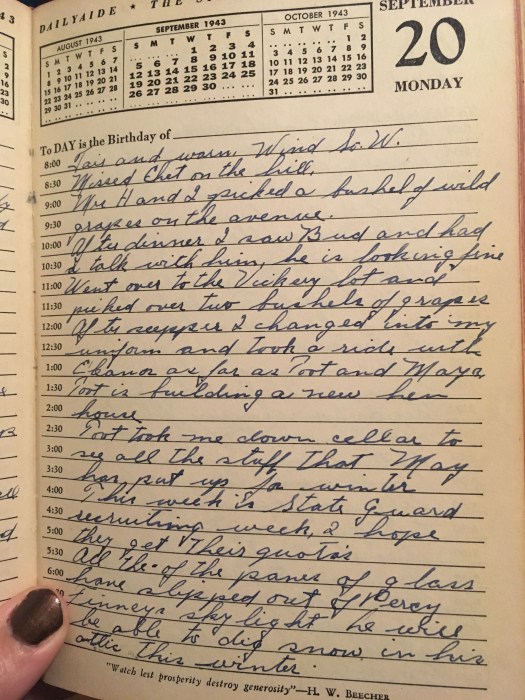 DAILYAIDE ★ THE S
SEPTEMBER
20
MONDAY
AUGUST 1943
S M T W T F S
1 2 3 4 5 6 7
8 9 10 11 12 13 14
15 16 17 18 19 20 21
22 23 24 25 26 27 28
29 30 31
SEPTEMBER 1943
S M T W T F S
1 2 3 4
5 6 7 8 9 10 11
12 13 14 15 16 17 18
19 20 21 22 23 24 25
26 27 28 29 30
OCTOBER 1943
S M T W T F S
1 2
3 4 5 6 7 8 9
10 11 12 13 14 15 16
17 18 19 20 21 22 23
24 25 26 27 28 29 30
31
To DAY is the Birthday of
8:00 Fair and warm, Wind So. W.
8:30 Missed Chet on the hill.
9:00 Mr H and I picked a bushel of wild
9:30 grapes on the avenue.
10:00 After dinner I saw Bud and had
10:30 a talk with him, he is looking fine
11:00 Went over to the Vickery lot and
11:30 picked over two bushels of grapes
12:00 After supper I changed into my
12:30 uniform and took a ride with
1:00 Eleanor as far as Toot and Mays
1:30 Toot is building a new hen
2:00 house
2:30 Toot took me down cellar to
3:00 see all the stuff that May
3:30 has put up for winter
4:00 This week is State Guard
4:30 recruiting week, I hope
5:00 they get their quotas
5:30 All the of the panes of glass
6:00 have slipped out of Percy
Finneys sky light he will
be able to dig snow in his
attic this winter.
"Watch lest prosperity destroy generosity"—H. W. BEECHER